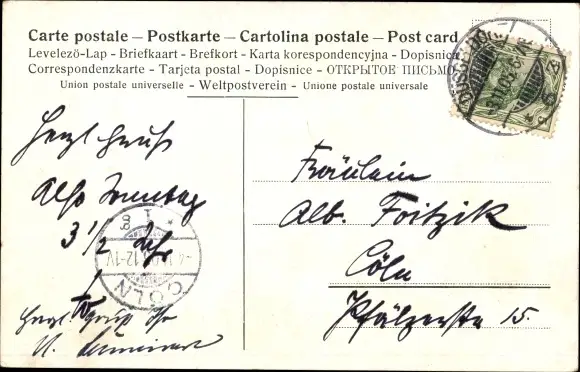 Carte postale – Postkarte – Cartolina postale – Post card
Levelező-Lap - Briefkaart - Brefkort - Karta korespondencyjna - Dopisnica
Correspondenzkarte - Tarjeta postal - Dopisnice - ОТКРЫТОЕ ПИСЬМО
Union postale universelle - Weltpostverein - Unione postale universale
Herzl Gruß
Also Sonntag
3 1/2 Uhr
Herzl Gruß
Fräulein
Alb. Fritzik
Cöln
Pfälzerstr 15.
CÖLN
12-1V